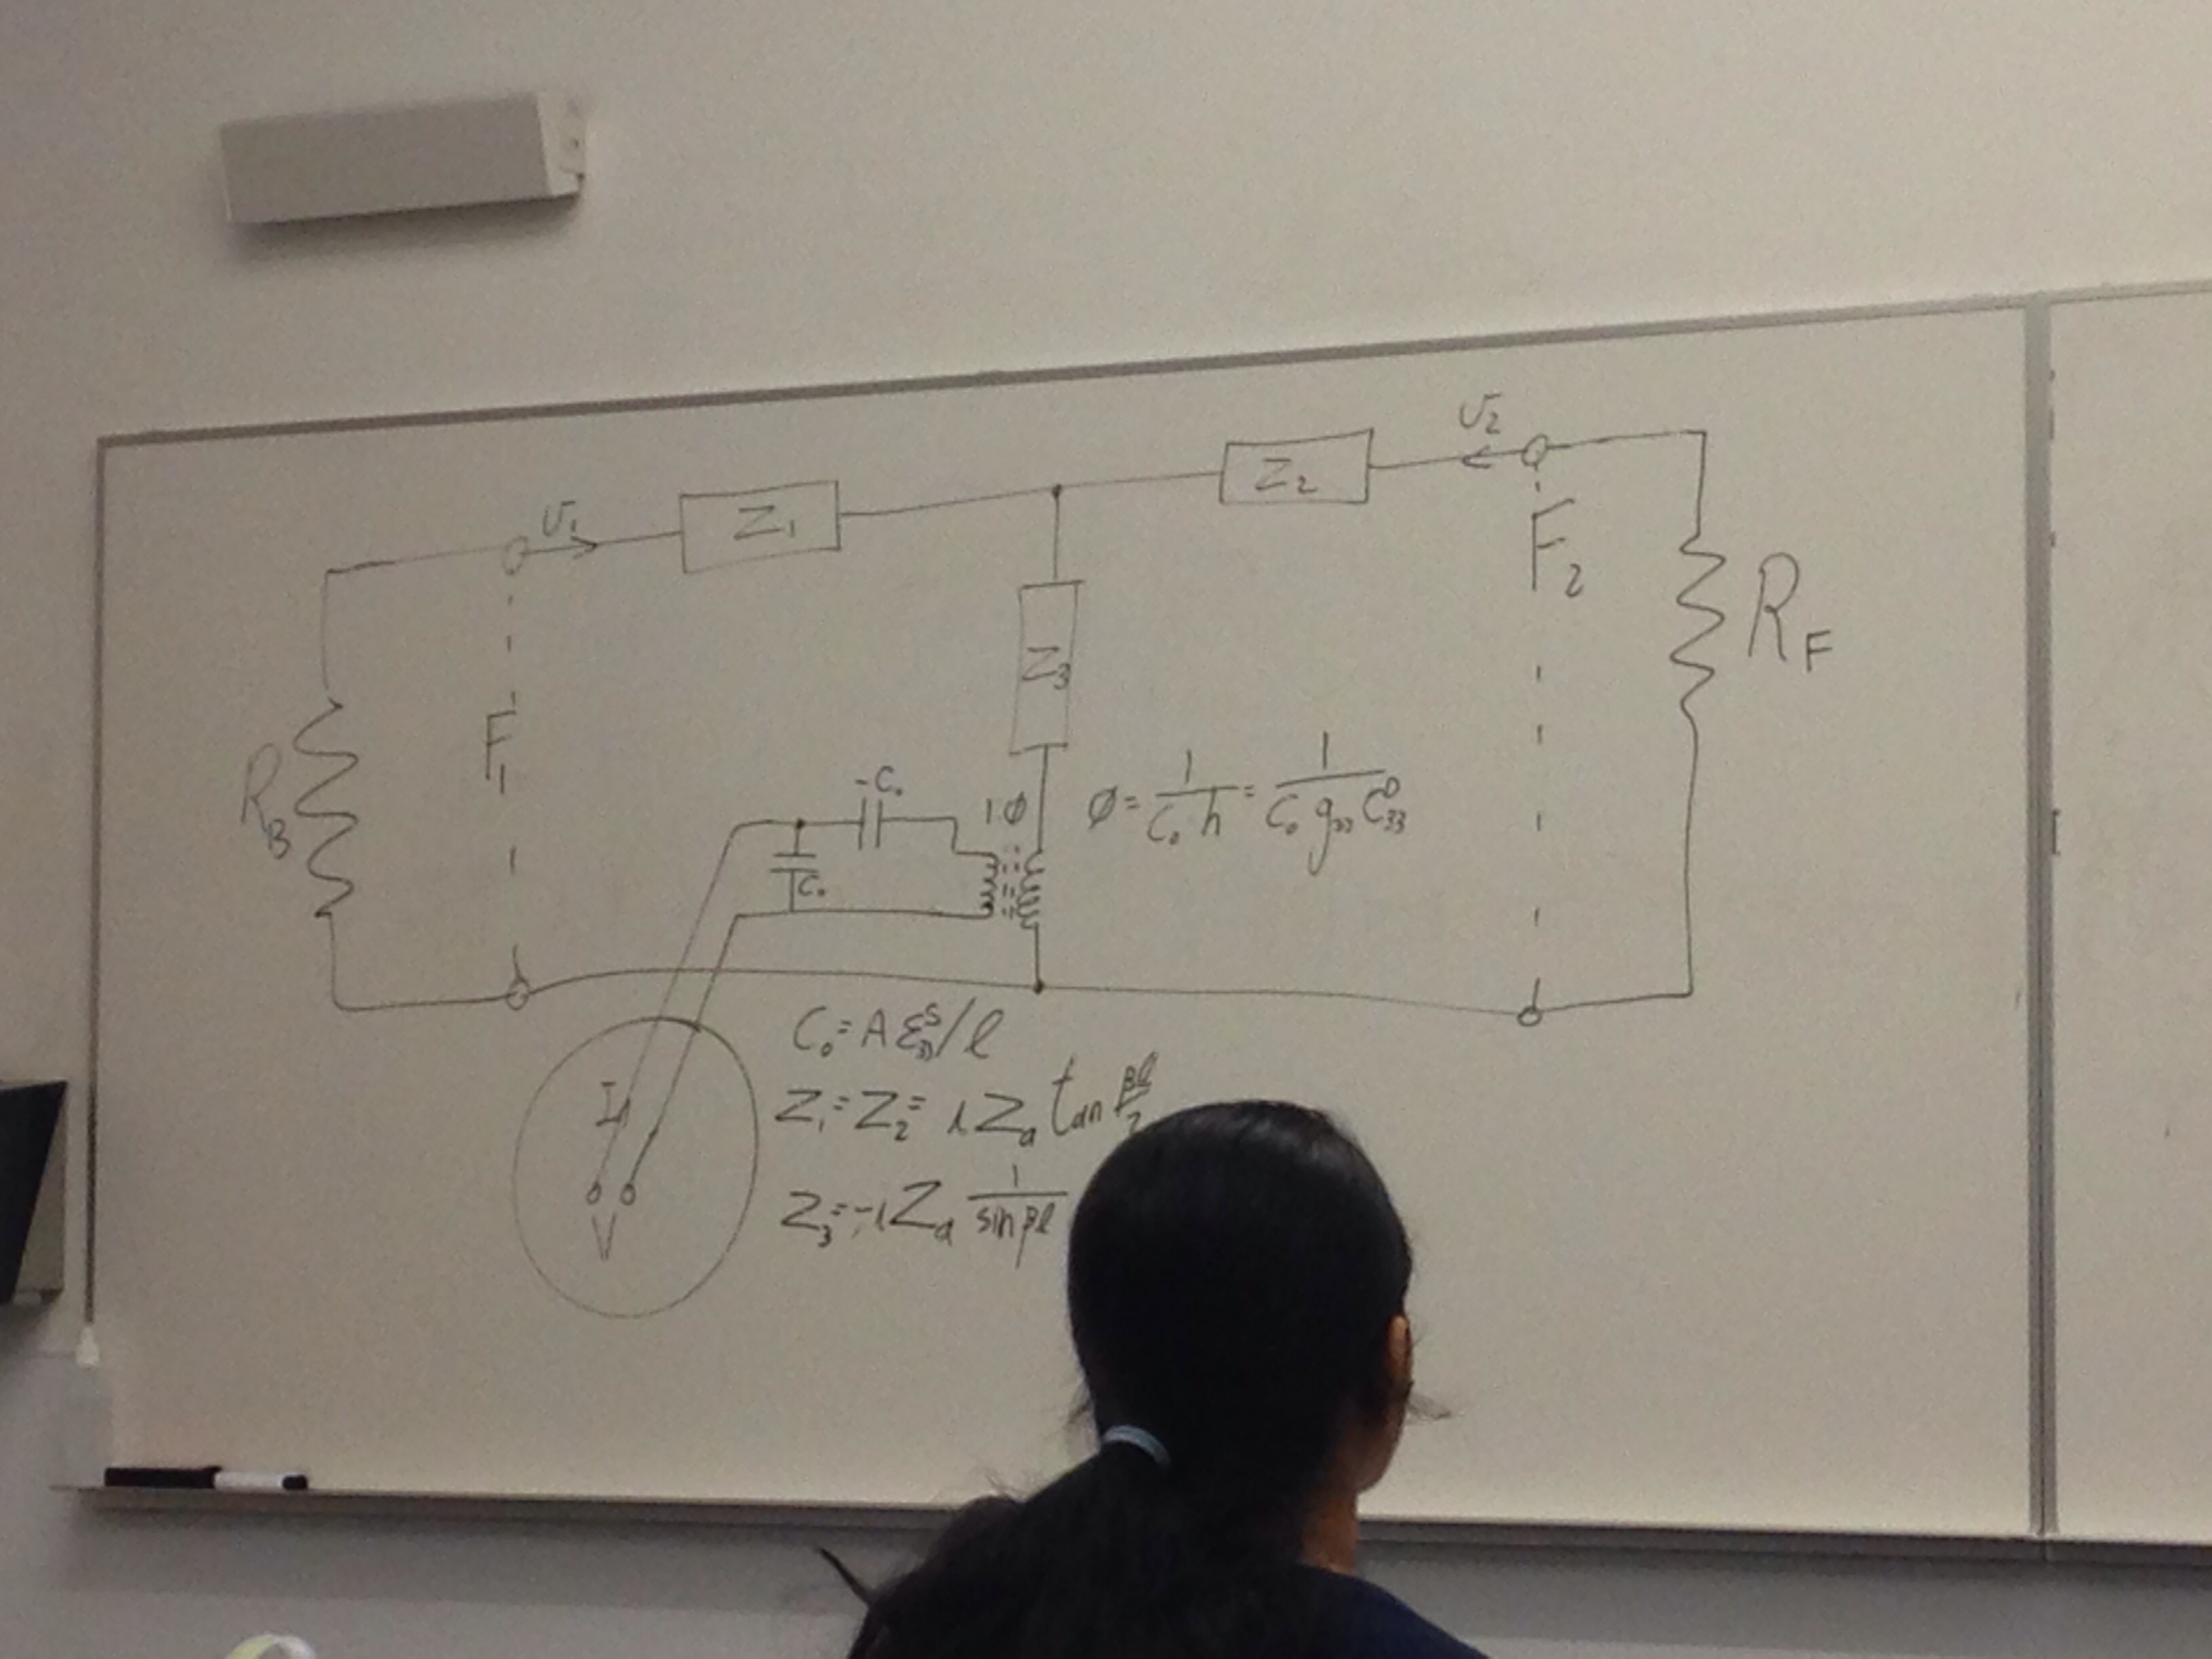 υ₂
υ₁
Z₂
Z₁
F₂
R_F
Z₃
F₁
R_B
-C₀
1:ϕ
ϕ = 1/(C₀ h) = 1/(C₀ g₃₃ C₃₃ᴰ)
C₀
C₀ = A ε₃₃ˢ/ℓ
I
Z₁ = Z₂ = i Zₐ tan βℓ/2
Z₃ = -i Zₐ 1/(sin βℓ)
V